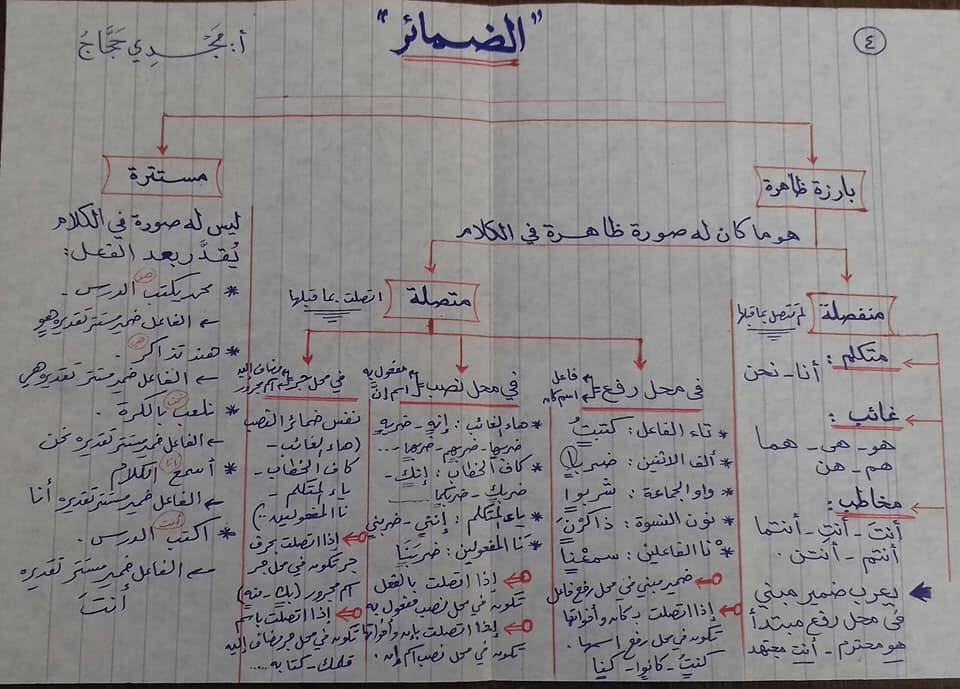 ٤
"الضمائر"
أ: مَجْدِي حَجَّاجُ
بارزة ظاهرة
هو ما كان له صورة ظاهرة في الكلام
منفصلة
لم تتصل بما قبلها
متكلم:
أنا - نحن
غائب:
هو - هي - هما
هم - هن
مخاطب:
أنتَ - أنتِ - أنتما
أنتم - أنتن.
يعرب ضمير مبني
في محل رفع مبتدأ
هو محترم - أنت مجتهد
متصلة
اتصلت بما قبلها
في محل رفع
فاعل
اسم كان
* تاء الفاعل: كتبتُ
* ألف الاثنين: ضربا
* واو الجماعة: شربوا
* نون النسوة: ذاكرْنَ
* نا الفاعلين: سمعْنا
ضمير مبني في محل رفع فاعل
إذا اتصلت بكان وأخواتها
تكون في محل رفع اسمها.
كنتُ - كانوا - كنا
في محل نصب
مفعول به
اسم إن
* هاء الغائب: إنه - ضربه
ضربها - ضربهم - ضربهما ...
* كاف الخطاب: إنك -
ضربك - ضربكما ...
* ياء المتكلم: إنني - ضربني
* نا المفعولين: ضربَنَا
إذا اتصلت بالفعل
تكون في محل نصب مفعول به
إذا اتصلت بإن وأخواتها
تكون في محل نصب اسم إن.
في محل جر
مضاف إليه
اسم مجرور
نفس ضمائر النصب
(هاء الغائب -
كاف الخطاب -
ياء المتكلم -
نا المفعولين ..)
إذا اتصلت بحرف
جر تكون في محل جر
اسم مجرور (بك - منه)
إذا اتصلت باسم
تكون في محل جر مضاف إليه
قلمك - كتابه .....
مستترة
ليس له صورة في الكلام
يُقدَّر بعد الفعل:
* محمد يكتب الدرس -
هو
الفاعل ضمير مستتر تقديره هو
* هند تذاكر.
هي
الفاعل ضمير مستتر تقديره هي
* نلعب بالكرة.
نحن
الفاعل ضمير مستتر تقديره نحن
* أسمع الكلام
أنا
الفاعل ضمير مستتر تقديره أنا
* اكتب الدرس.
أنت
الفاعل ضمير مستتر تقديره
أنتَ